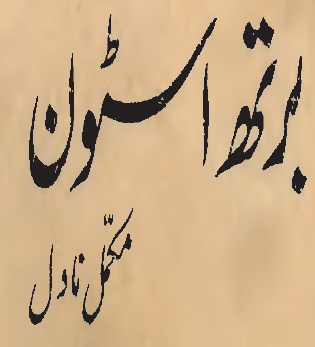 برتھ اسٹون
مکمّل ناول